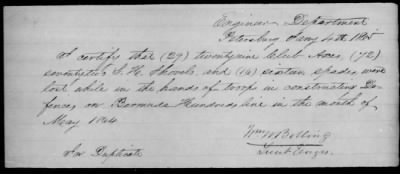 Engineer Department
Petersburg Jany 4th 1865
I certify that (29) twentynine Club Axes, (72)
seventytwo S. H. Shovels, and (16) sixteen spades were
lost while in the hands of troops in constructing De-
fences on Bermuda Hundreds line in the month of
May 1864
Wm W Bolling
Lieut Engrs.
In Duplicate